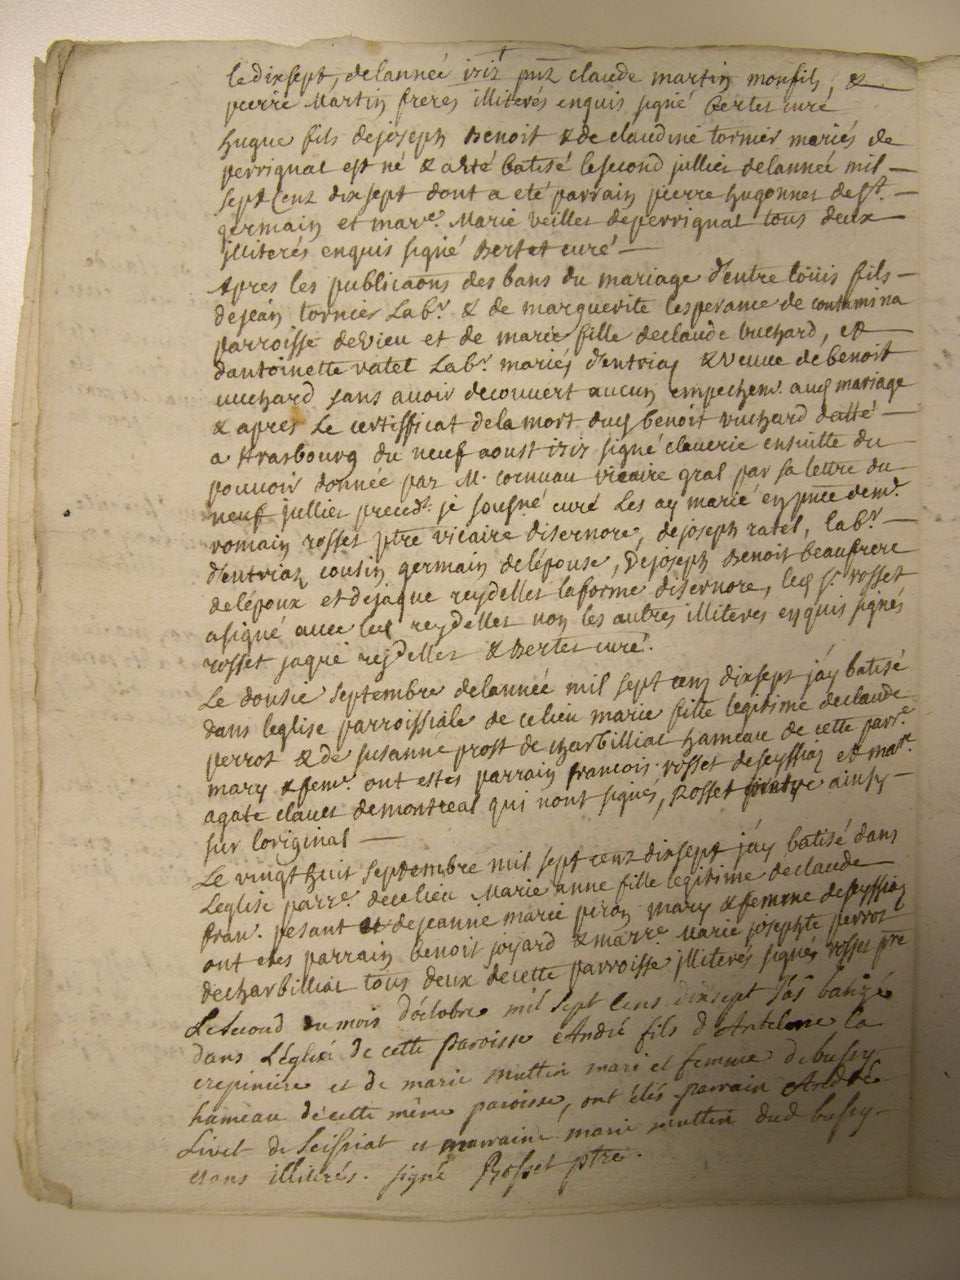 le dixsept, delanneé 1717 pnz claude martin monfils, &
pierre Martin freres illiterés enquis signé Bertet curé
hugue fils dejoseph Benoit & de claudine tornier mariés de
perrignat est né & a été batisé lesecond jullier delanneé mil
sept Cens dix sept dont a eté parrain pierre hugonnet de St.
germain et mare. Marie veillet deperrignat tous deux
illiterés enquis signé Bertet curé
Apres les publicaons des bans du mariage d'entre loüis fils
dejean tornier Labr. & de marguerite lesperance de contamina
parroisse devieu et de marie fille declaude buchard, et
dantoinette ratet Labr. mariés d'entriaz & veuve de benoit
vuchard sans avoir decouvert aucun empechemt. aud mariage
& apres Le certifficat delamort dud benoit vuchard datté
a strasbourg du neuf aoust 1717 signé claverie ensuitte du
pouvoir donneé par M. cornuau vicaire gral par sa lettre du
neuf jullier precedt. je sousné curé Les ay marié en pnce dem.
romain rosset ptre vicaire disernore, dejoseph ratet, labr.
d'entriaz cousin germain delépouse, dejoseph Benoit beaufrere
delépoux et dejaque reydellet laforme disernore, led sr. rosset
asigné avec led reydellet non les autres illiteres enquis signés
rosset jaque reydellet & Bertet curé.
Le dousie septembre delanneé mil sept cens dixsept jáy batisé
dans leglise parroissiale de celieu marie fille legitime declaude
perrot & de susanne prost de charbilliat hameau de cette parre.
mary & feme. ont estés parrain francois rosset deseyssiaz et mare.
agate clavet demontreal qui nont signés, Rosset ptre ainsy
sur loriginal
Le vingt huit septembre mil sept cens dixsept jáy batisé dans
Léglise parre. decelieu Marie anne fille legitime declaude
fran. pesant et dejeanne marie piron mary & femme deseyssiaz
ont etés parrain benoit joyard & marre. Marie josephte perrot
decharbilliat tous deux decette parroisse illiterés signés rosset ptre
Le second du mois d'octobre mil sept cens dixsept Jás batizé
dans Léglisé de cette paroisse André fils d'Antelme la
crepiniere et de marie muttin mari et femme debussy
hameau décette même paroisse, ont étés parrain André
Livet de Seissiat et marraine marie muttin dud bussy
tous illitérés. signé Rosset ptre.